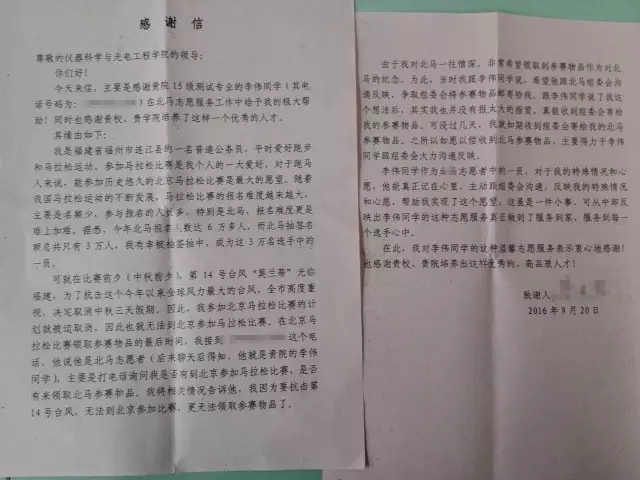 感谢信
尊敬的仪器科学与光电工程学院的领导：
你们好！
今天来信，主要是感谢贵院15级测试专业的李伟同学（其电
话号码为：）在北马志愿服务工作中给予我的极大帮
助！同时也感谢贵校、贵学院培养了这样一个优秀的人才。
其缘由如下：
我是福建省福州市连江县的一名普通公务员，平时爱好跑步
和马拉松运动。参加马拉松比赛是我个人的一大爱好。对于跑马
人来说，能参加历史悠久的北京马拉松比赛是最大的愿望。随着
我国马拉松运动的不断发展，马拉松比赛的报名难度越来越大，
主要是名额少，参与报名的人数多，特别是北马，报名难度更是
难上加难。据悉，今年北马报名人数达6万多人，而北马抽签名
额总共只有3万人，我有幸被抽签抽中，成为这3万名选手中的
一员。
可就在比赛前夕（中秋前夕），第14号台风“莫兰蒂”光临
福建，为了抗击这个今年以来全球风力最大的台风，全市高度重
视，决定取消中秋三天假期。因此，我参加北京马拉松比赛的计
划就被迫取消，因此也就无法到北京参加马拉松比赛。在北京马
拉松比赛领取参赛物品的最后时间，我接到这个电
话，他说他是北马志愿者（后来聊天后得知，他就是贵院的李伟
同学），主要是打电话询问我是否有到北京参加马拉松比赛，是否
有来领取北马参赛物品。我将相关情况告诉他，我因为要抗击第
14号台风，无法到北京参加比赛，更无法领取参赛物品了。
由于我对北马一往情深，非常希望领取到参赛物品作为对北
马的纪念。为此，当时我跟李伟同学说，希望他跟北马组委会沟
通反映，争取组委会将参赛物品邮寄给我。跟李伟同学说了我这
个想法后，其实我也并没有报太大的指望，真能收到组委会寄给
我的参赛物品。可没过几天，我就如期收到组委会寄给我的北马
参赛物品。之所以如愿以偿收到北马参赛物品，主要得力于李伟
同学跟组委会大力沟通反映。
李伟同学作为北马志愿者中的一员，对于我的特殊情况和心
愿，他能真正记在心里，主动跟组委会沟通，反映我的特殊情况
和心愿，帮助我实现了这个愿望。这虽是一件小事，可从中却反
映出李伟同学的这种志愿服务真正做到了服务到家，服务到每一
个选手心中。
在此，我对李伟同学的这种温馨志愿服务表示衷心地感谢！
也感谢贵校、贵院培养出这样优秀的、高品质人才！
致谢人：
2016年9月20日